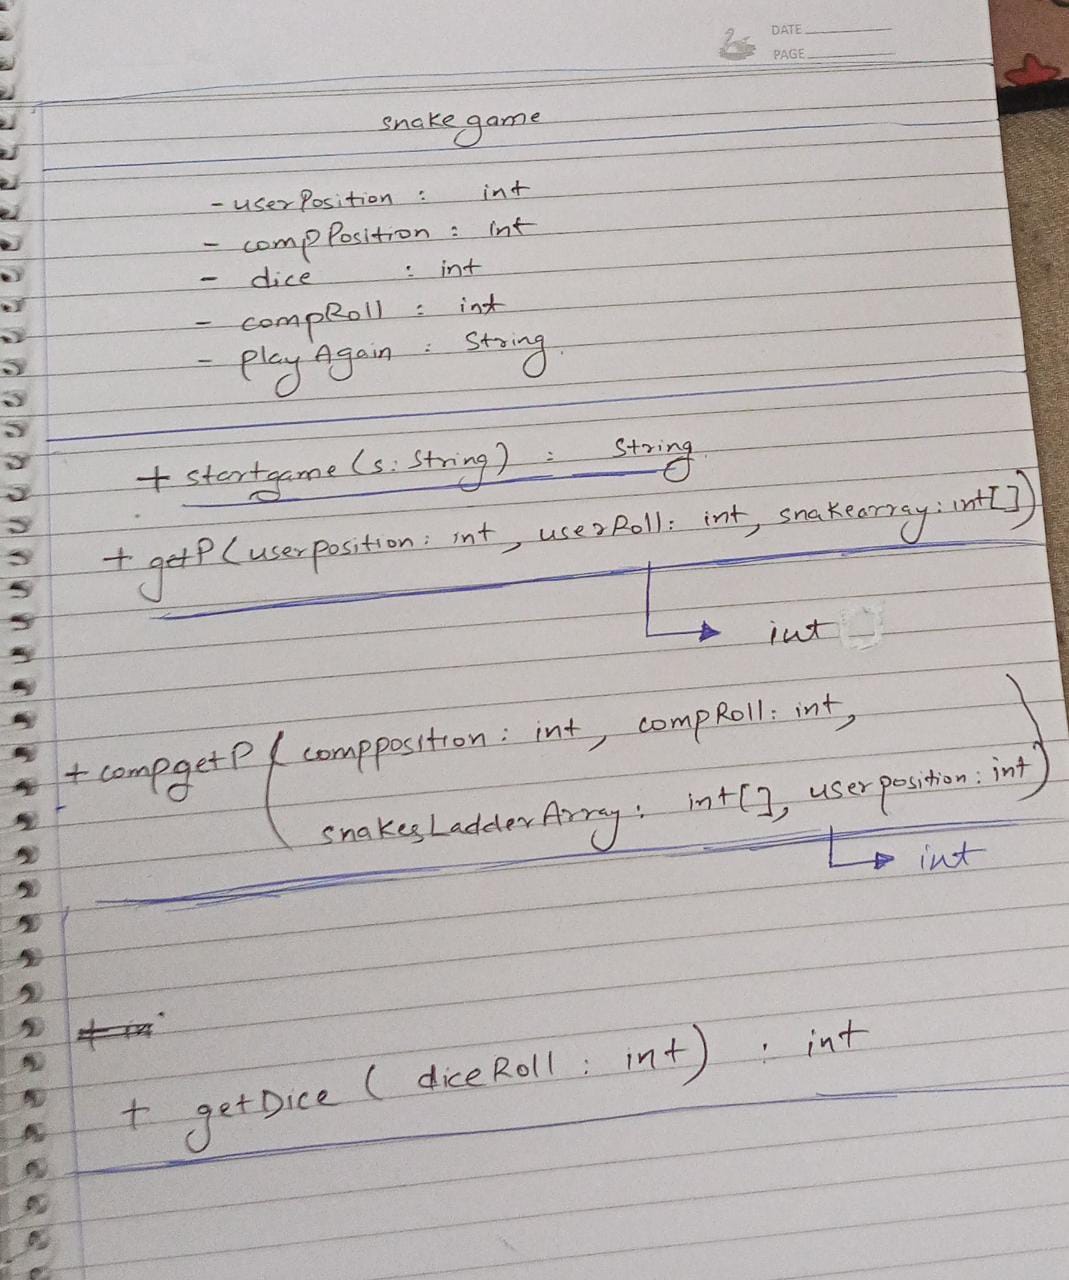 DATE
PAGE
snake game
- userPosition : int
- compPosition : int
- dice : int
- compRoll : int
- play Again : String
+ startgame (s: String) : String
+ getP (userposition: int, userRoll: int, snakearray: int[])
int
+ compgetP (compposition: int, compRoll: int,
snakesLadderArray: int[], userposition: int)
int
+ getDice (diceRoll : int) : int